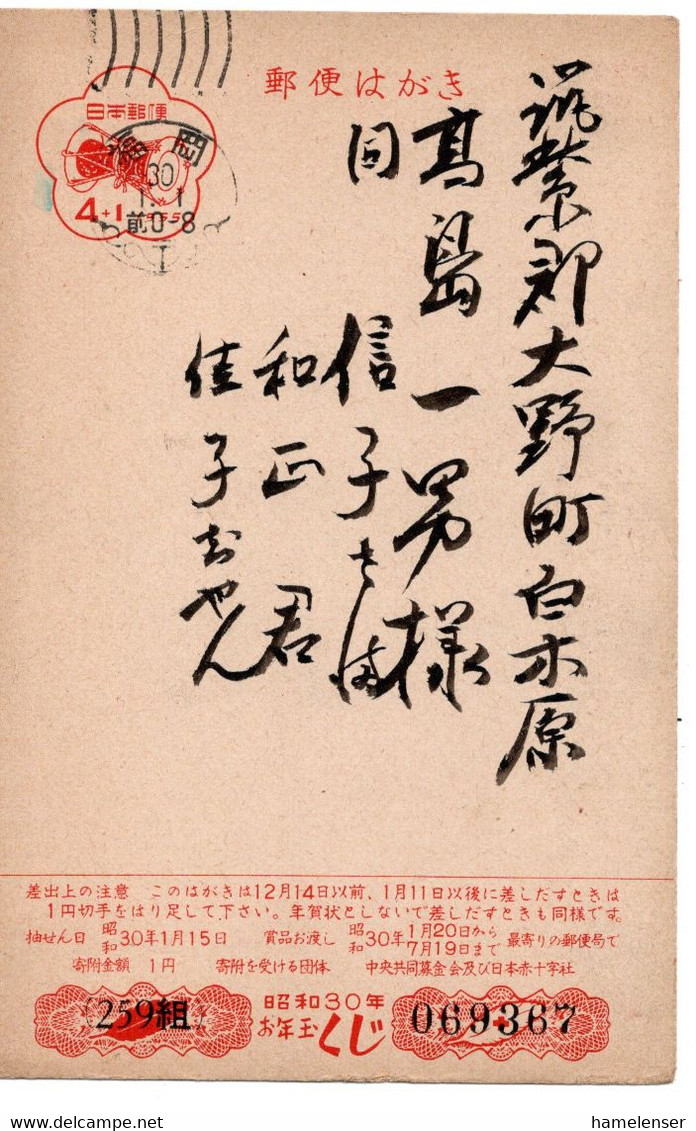 郵便はがき
日本郵便
4+1 1955
福岡
30
1.1
前0-8
筑紫郡大野町白木原
高島一男様
同
信子さま
和正君
佳子ちやん
差出上の注意 このはがきは12月14日以前、1月11日以後に差しだすときは
1円切手をはり足して下さい。年賀状としないで差しだすときも同様です。
抽せん日 昭和30年1月15日 賞品お渡し 昭和30年1月20日から7月19日まで 最寄りの郵便局で
寄附金額 1円 寄附を受ける団体 中央共同募金会及び日本赤十字社
259組
昭和30年
お年玉くじ
069367
hamelenser